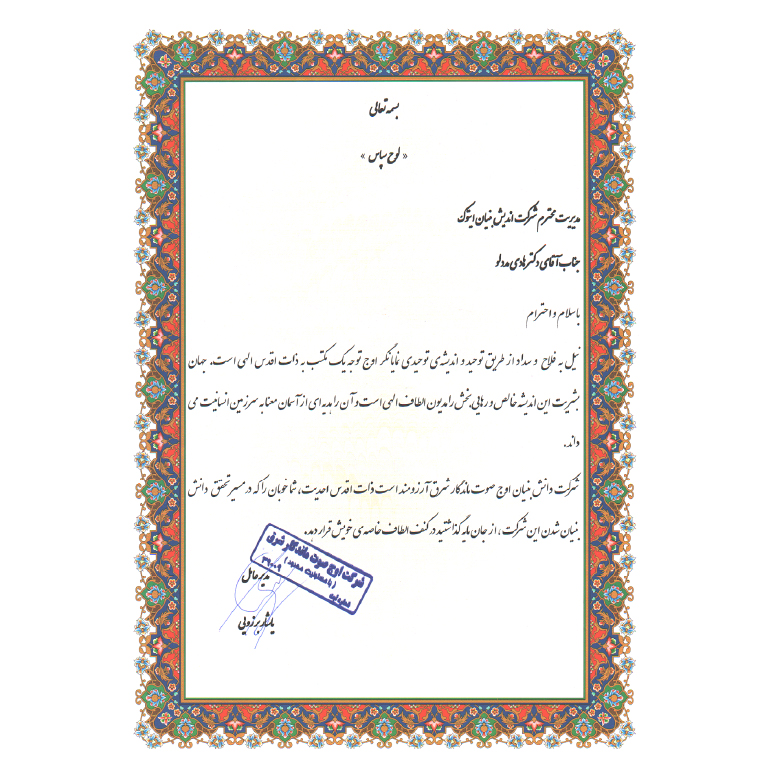 بسمه تعالی
« لوح سپاس »
مدیریت محترم شرکت اندیش بنیان ایتوک
جناب آقای دکتر هادی مددلو
با سلام و احترام
نیل به فلاح و سداد از طریق توحید و اندیشه‌ی توحیدی نمایانگر اوج توجه یک مکتب به ذات اقدس الهی است. جهان
بشریت این اندیشه خالص و رهایی بخش را مدیون الطاف الهی است و آن را هدیه ای از آسمان معنا به سرزمین انسانیت می
داند.
شرکت دانش بنیان اوج صوت ماندگار شرق آرزومند است ذات اقدس احدیت، شما خوبان را که در مسیر تحقق دانش
بنیان شدن این شرکت، از جان مایه گذاشتید در کنف الطاف خاصه‌ی خویش قرار دهد.
شرکت اوج صوت ماندگار شرق
(با مسئولیت محدود)
مدیر عامل
برزویی